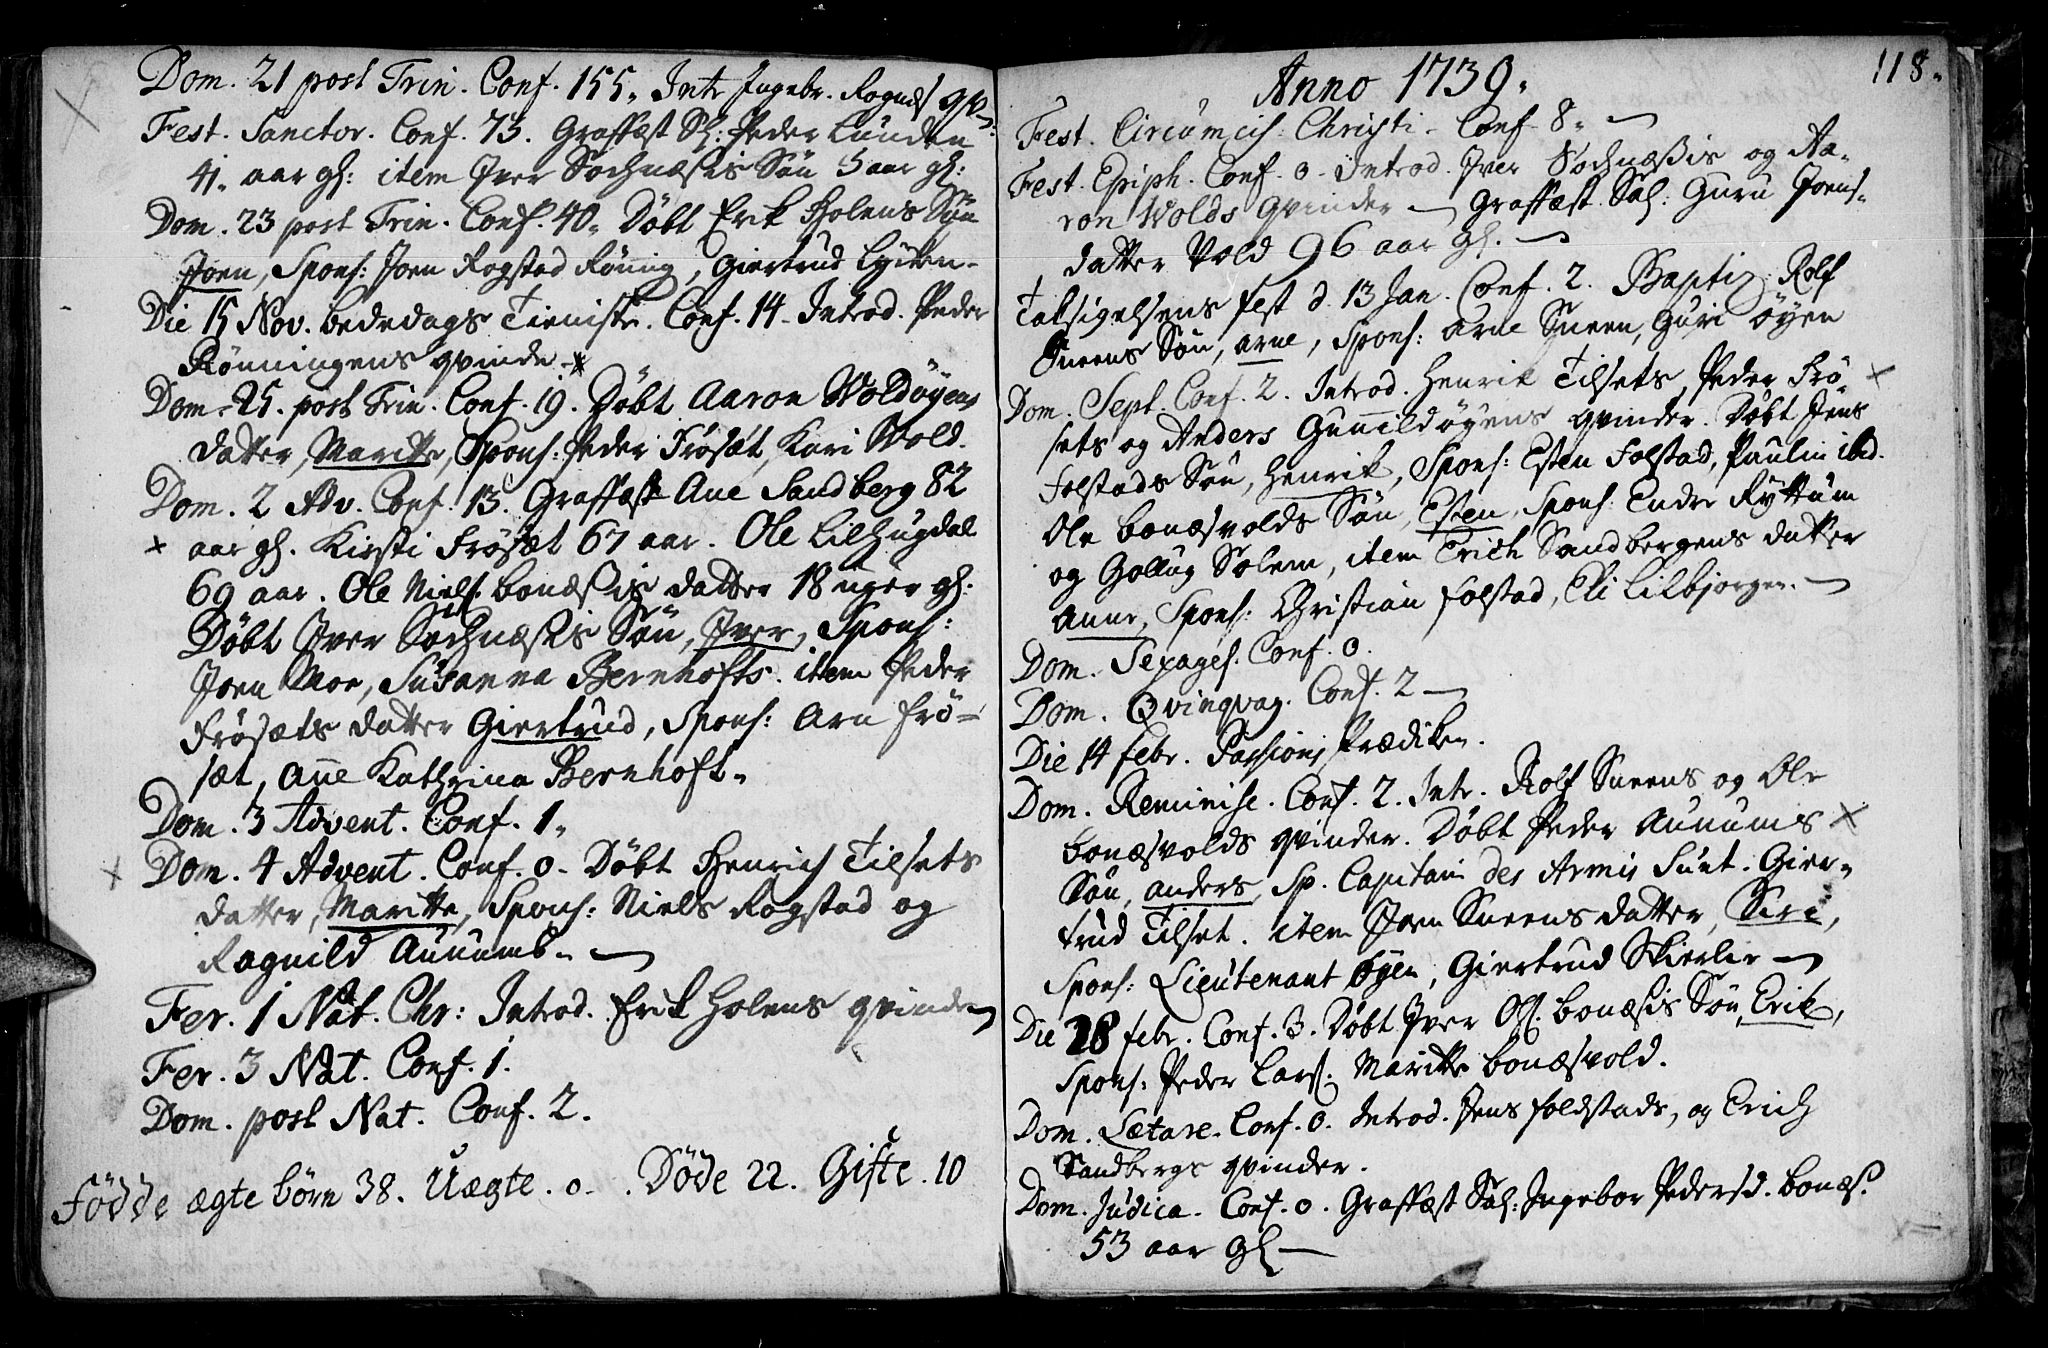 Dom. 21 post Trin. Conf. 155. Intr Ingebr. Rognæs qv:
Fest. Sanctor. Conf. 73. Graffæst Sl: Peder Lunden
41. aar gl: item Iver Sochnæssis Søn 5 aar gl:
Dom. 23 post Trin. Conf. 40. Døbt Erik Holens Søn
Joen, Spons: Joen Rogstad Rønnig, Giertrud
Die 15 Nov. bededags Tieniste. Conf. 14. Introd. Peder
Rønningens qvinde
Dom. 25. post Trin. Conf. 19. Døbt Aaron Woldøyens
datter, Maritte, Spons: Peder Frøsæt, Kari Wold.
Dom. 2 Adv. Conf. 13. Graffæst Ane Sandberg 82
aar gl. Kirsti Frøsæt 67 aar. Ole Lilhugdal
69 aar. Ole Niels. bonæssis datter 18 uger gl:
Døbt Iver Sochnæssis Søn, Iver, Spons:
Joen Moe, Susanna Bernhofts. item Peder
Frøsæts datter Giertrud, Spons: Arn Frø-
sæt, Ane Kathrina Bernhoft.
Dom. 3 Advent. Conf. 1.
Dom. 4 Advent. Conf. 0. Døbt Henrich Tilsets
datter, Maritte, Spons: Niels Rogstad og
Ragnild Aunums.
Fer. 1 Nat. Chr: Introd. Erik Holens qvinde
Fer. 3 Nat. Conf. 1.
Dom. post Nat. Conf. 2.
Fødde ægte børn 38. Uægte. 0. Døde 22. Gifte. 10
118.
Anno 1739.
Fest. Circumcis. Christi. Conf. 8.
Fest. Epiph. Conf. 0. Introd. Iver Sochnæssis og Aa-
ron Wolds qvinder. Graffæst Sal. Guru Joens-
datter Vold 96 aar gl.
Taksigelsens fest d. 13 Jan. Conf. 2. Baptiz. Rolf
Sneens Søn, Arne, Spons: Arne Sneen, Guri Øyen
Dom. Sept. Conf. 2. Introd. Henrik Tilsets, Peder Frø-
sets og Anders Gunnildøyens qvinder. Døbt Jens
Folstads Søn, Henrik, Spons: Esten Folstad, Paulin ibid.
Ole bonæsvolds Søn, Esten, Spons: Endre Ryttum
og Gollug Solem, item Erich Sandbergens datter
Anne, Spons: Christian Folstad, Eli Lilbjorgen.
Dom. Sexages. Conf. 0.
Dom. Qvinqvag. Conf. 2
Die 14 febr. Passions Prædiken.
Dom. Reminisc. Conf. 2. Intr. Rolf Sneens og Ole
bonæsvolds qvinder. Døbt Peder Aunums
Søn, Anders, Sp. Capitain des Armis Sunt. Gier-
trud Tilset. item Joen Sneens datter, Siri,
Spons: Lieutenant Øyen, Giertrud Skierlie
Die 28 febr. Conf. 3. Døbt Iver Ols. bonæssis Søn, Erik,
Spons: Peder Lars. Maritte bonæsvold.
Dom. Lætare. Conf. 0. Introd. Jens Foldstads, og Erich
Sandbergs qvinder.
Dom. Judica. Conf. 0. Graffæst Sal: Ingebor Pedersd. bonæs.
53 aar gl